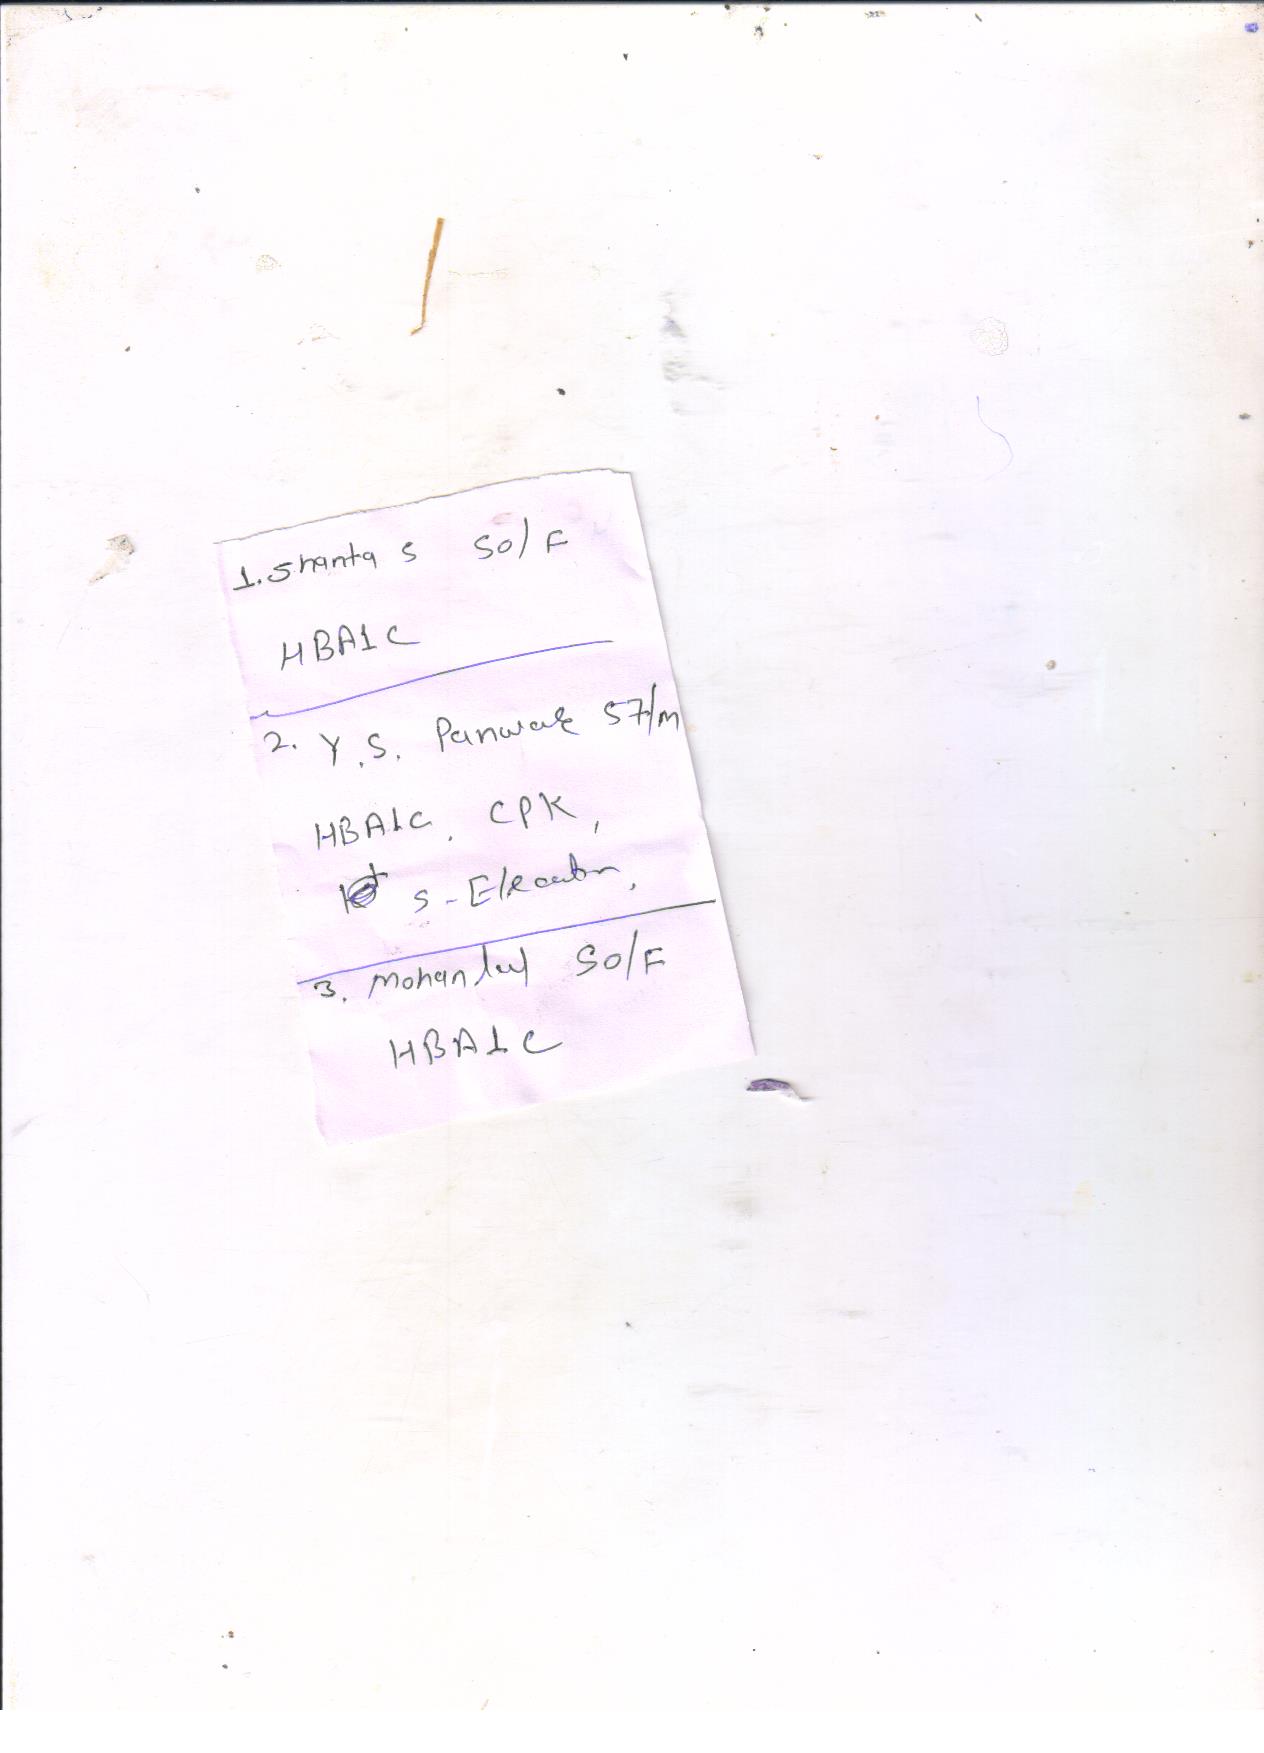 1. Shanta S 50/F
HBA1C
2. Y.S. Panwar 57/m
HBA1C, CPK,
S-Electro
3. Mohanlal 50/F
HBA1C